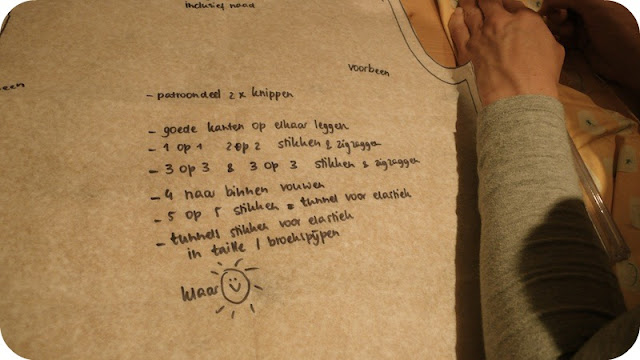 inclusief naad
voorbeen
een
- patroondeel 2 x knippen
- goede kanten op elkaar leggen
- 1 op 1 2 op 2 stikken & zigzaggen
- 3 op 3 & 3 op 3 stikken & zigzaggen
- 4 naar binnen vouwen
- 5 op 5 stikken = tunnel voor elastiek
- tunnels stikken voor elastiek
in taille / broekspijpen
klaar